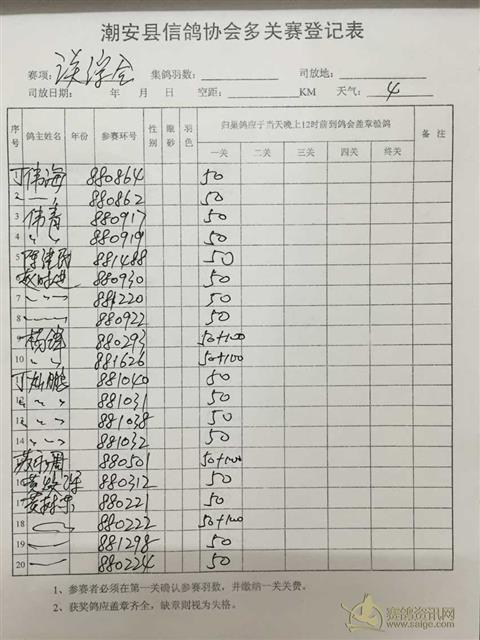 潮安县信鸽协会多关赛登记表
赛项: 集鸽羽数: 司放地:
司放日期: 年 月 日 空距: KM 天气: 4
序号 鸽主姓名 年份 参赛环号 性别 眼砂 羽色 归巢鸽应于当天晚上12时前到鸽会盖章验鸽 备注
一关 二关 三关 四关 终关
丁伟海 880864 50
2 〃 880862 50
3 伟青 880917 50
4 〃 〃 880919 50
5 881488 50
880930 50
7 〃 〃 〃 881220 50
8 〃 〃 〃 880922 50
9 杨锋 880293 50+100
10 〃 〃 881626 50+100
丁灿鹏 881040 50
12 〃 〃 〃 881031 50
13 〃 〃 〃 881038 50
14 〃 〃 〃 881032 50
880501 50+100
16 880312 50
17 880221 50
18 880222 50+100
19 881298 50
20 880224 50
1、参赛者必须在第一关确认参赛羽数，并缴纳一关关费。
2、获奖鸽应盖章齐全，缺章则视为失格。
赛鸽资讯网
www.saige.com